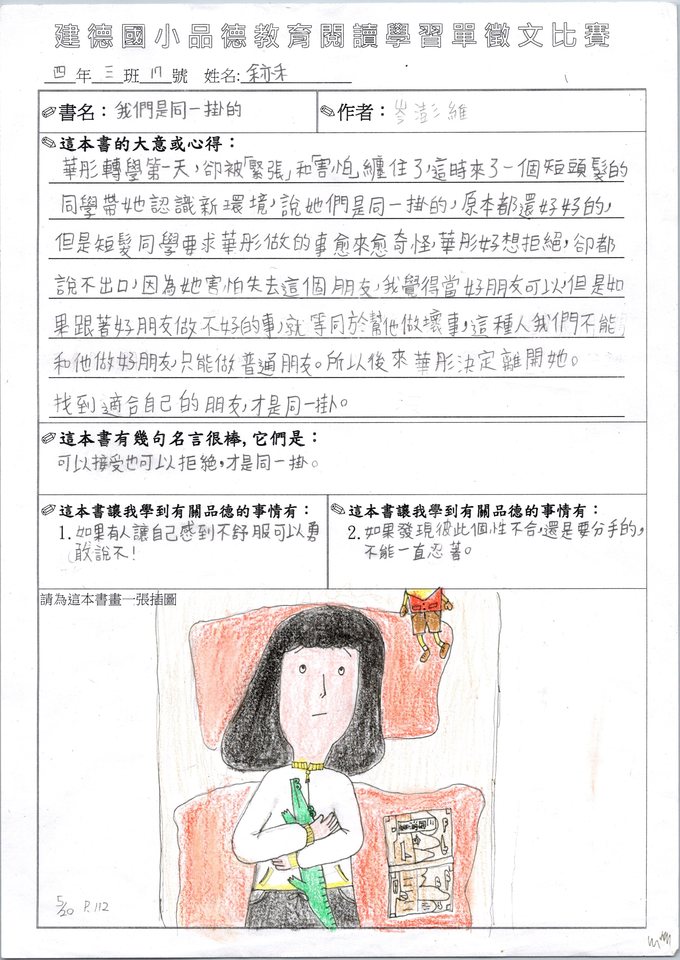 建德國小品德教育閱讀學習單徵文比賽
四年三班17號 姓名:
書名：我們是同一掛的
作者：岑澎維
這本書的大意或心得：
華彤轉學第一天，卻被「緊張」和「害怕」纏住了，這時來了一個短頭髮的
同學帶她認識新環境，說她們是同一掛的，原本都還好好的，
但是短髮同學要求華彤做的事愈來愈奇怪，華彤好想拒絕，卻都
說不出口，因為她害怕失去這個朋友，我覺得當好朋友可以，但是如
果跟著好朋友做不好的事，就等同於幫他做壞事，這種人我們不能
和他做好朋友，只能做普通朋友。所以後來華彤決定離開她。
找到適合自己的朋友，才是同一掛。
這本書有幾句名言很棒，它們是：
可以接受也可以拒絕，才是同一掛。
這本書讓我學到有關品德的事情有：
1. 如果有人讓自己感到不舒服可以勇
敢說不！
這本書讓我學到有關品德的事情有：
2. 如果發現彼此個性不合，還是要分手的，
不能一直忍著。
請為這本書畫一張插圖
5/20 P.112